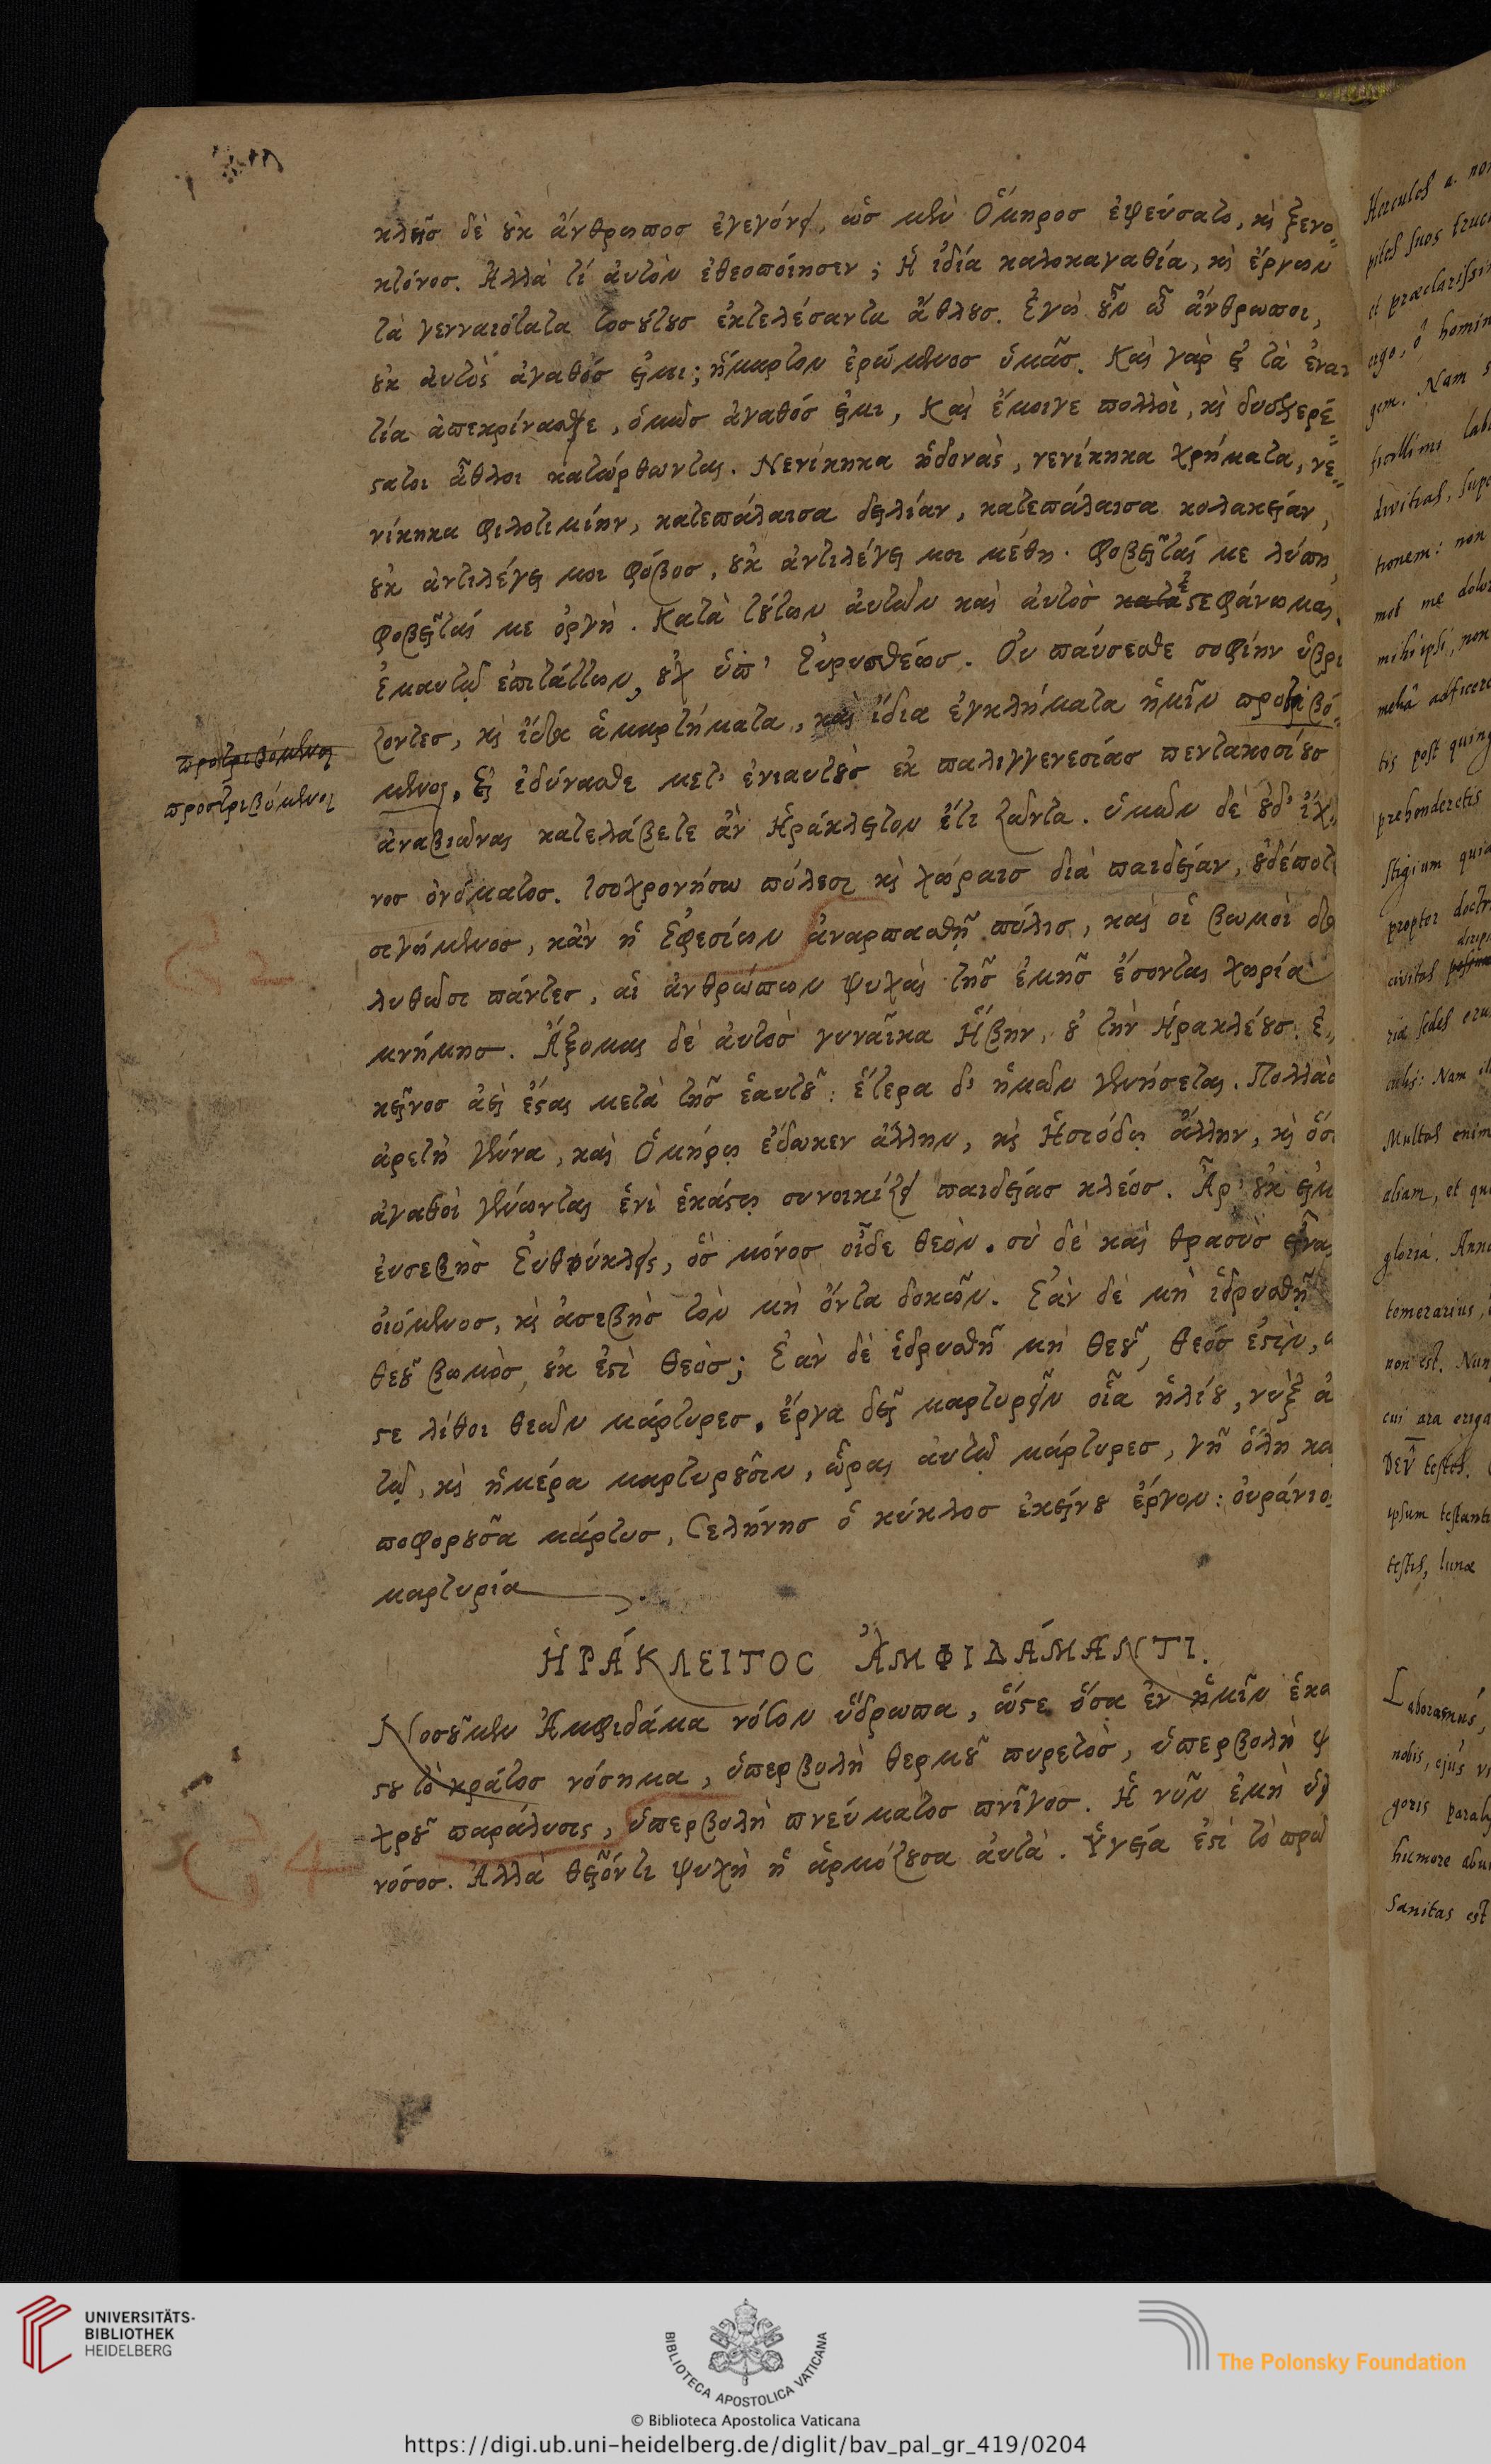 κλῆσ δὲ ȣ̓κ ἄνθρωποσ ἐγεγόνει, ὡσ μὲν Ὅμηροσ ἐψεύσατο, κὶ ξενο=
κτόνοσ. Ἀλλὰ τί ἀυτὸν ἐθεοποίησεν; Ἡ ἰδία καλοκαγαθία, κὶ ἔργων
τὰ γενναιότατα τοσȣ́τȣσ ἐκτελέσαντα ἄθλȣσ. Ἐγὼ ȣ̓͂ν ὦ ἄνθρωποι,
ȣ̓κ ἀυτὸς ἀγαθόσ εἰμι; ἥμαρτον ἐρώμενοσ ὑμᾶσ. Καὶ γὰρ εἰ τὰ ἐναν
τία ἀπεκρίνασθε, ὅμωσ ἀγαθόσ εἰμι, Καὶ ἔμοιγε πολλοὶ, κὶ δυσχερέ=
στατοι ἆθλοι κατώρθωνται. Νενίκηκα ἡδονὰς, νενίκηκα χρήματα, νε=
νίκηκα φιλοτιμίην, κατεπάλαισα δειλίαν, κατεπάλαισα κολακείαν,
ȣ̓κ ἀντιλέγει μοι φόβοσ, ȣ̓κ ἀντιλέγει μοι μέθη. φοβεῖταί με λύπη,
φοβεῖταί με ὀργὴ. Κατὰ τȣ́των ἀυτῶν καὶ ἀυτὸσ κατα ἐστεφάνωμαι,
Ἐμαυτῷ ἐπιτάττων, ȣ̓χ ὑπ' Ἐυρυσθέωσ. Ὀυ παύσεσθε σοφίην ὑβρί
ζοντεσ, κὶ ἴδια ἁμαρτήματα, καὶ ἴδια ἐγκλήματα ἡμῖν προστριβό=
μενοι. Εἰ ἐδύνασθε μετ' ἐνιαυτȣ̀σ ἐκ παλιγγενεσίασ πεντακοσίȣσ
προστριβόμενοι
προστριβόμενοι
ἀναβιῶναι κατελάβετε ἂν Ἡράκλειτον ἔτι ζῶντα. ὑμῶν δὲ ȣ̓δ' ἴχ
νοσ ὀνόματοσ. Ἰσοχρονήσω πόλεσι κὶ χώραισ διὰ παιδείαν, ȣ̓δέποτε
σιγώμενοσ, κἂν ἡ Ἐφεσίων ἀναρπασθῇ πόλισ, καὶ οἱ βωμοὶ δια
λυθῶσι πάντεσ, αἱ ἀνθρώπων ψυχαὶ τῆσ ἐμῆσ ἔσονται χωρία
μνήμησ. Ἄξομαι δὲ ἀυτὸσ γυναῖκα Ἥβην, ȣ̓ τὴν Ἡρακλέȣσ. ἐ
κεῖνοσ ἀεὶ ἔσται μετὰ τῆσ ἑαυτȣ͂: ἑτέρα δ' ἡμῶν γενήσεται. Πολλὰσ
ἀρετὴ γεννᾷ, καὶ Ὁμήρῳ ἔδωκεν ἄλλην, κὶ Ἡσιόδῳ ἄλλην, κὶ ὅσοι
ἀγαθοὶ γένωνται ἑνὶ ἑκάστῳ συνοικίζει παιδείασ κλέοσ. Ἆρ' ȣ̓κ εἰμὶ
ἐυσεβὴσ Ἐυθύκλεις, ὃσ μόνοσ οἶδε θεόν. σὺ δὲ καὶ θρασὺσ εἶναι
οἰόμενοσ, κὶ ἀσεβὴσ τὸν μὴ ὄντα δοκῶν. Ἐὰν δὲ μὴ ἱδρυσθῇ
θεȣ͂ βωμὸσ, ȣ̓κ ἐστὶ θεὸσ; Ἐὰν δὲ ἱδρυσθῇ μὴ θεȣ͂, θεόσ ἐστιν,
στε λίθοι θεῶν μάρτυρεσ. ἔργα δεῖ μαρτυρεῖν οἷα ἡλίȣ, νὺξ ἀυ
τῷ, κὶ ἡμέρα μαρτυρȣ͂σιν, ὧραι ἀυτῷ μάρτυρεσ, γῆ ὅλη καρ
ποφορȣ͂σα μάρτυσ, Σελήνησ ὁ κύκλοσ ἐκείνȣ ἔργον: ὀυράνιοσ
μαρτυρία.
ἩΡΆΚΛΕΙΤΟC ἈΜΦΙΔΆΜΑΝΤΙ.
Νοσȣ͂μεν Ἀμφιδάμα νότον ὕδρωπα, ὥστε ὅσα ἐν ἡμῖν ἑκά
στȣ τὸ κράτοσ νόσημα, ὑπερβολὴ θερμȣ͂ πυρετὸσ, ὑπερβολὴ ψ
χρȣ͂ παράλυσις, ὑπερβολὴ πνεύματοσ πνῖγοσ. Ἡ νῦν ἐμὴ ὑγ
νόσοσ. Ἀλλὰ θεῖόν τι ψυχὴ ἡ ἁρμόζȣσα ἀυτὰ. Ὑγεία ἐστὶ τὸ πρῶ
Hercules a. non
piles suos truci
et praeclarissi
ergo, ô homin
gem. Nam s
ficillimi lab
divitias, supe
tionem: non
mot me dolor
mihi ipsi, non
tis post quing
prehenderetis
stigium quia
propter doctri
civitas
ria sedes erun
Multas enim
aliam, et qui
gloriâ. Ann
temerarius,
non est. Nun
cui ara eriga
testes.
ipsum testant
testis, lunæ
Laboramus,
nobis, ejus vi
goris paraly
humore abu
Sanitas est
UNIVERSITÄTS-
BIBLIOTHEK
HEIDELBERG
BIBLIOTECA APOSTOLICA VATICANA
The Polonsky Foundation
© Biblioteca Apostolica Vaticana
https://digi.ub.uni-heidelberg.de/diglit/bav_pal_gr_419/0204